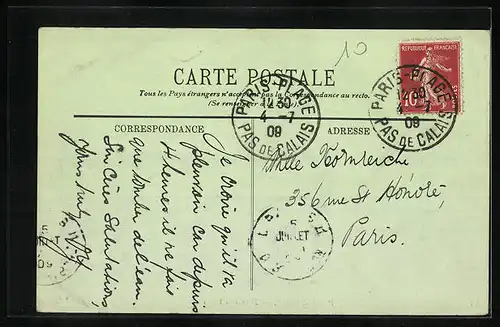 10
CARTE POSTALE
Tous les Pays étrangers n'acceptent pas la Correspondance au recto.
(Se renseigner à la Poste).
RÉPUBLIQUE FRANÇAISE
POSTES
10
PARIS-PLAGE
12 30
4 - 7
09
PAS DE CALAIS
PARIS-PLAGE
12 30
4 - 7
09
PAS DE CALAIS
CORRESPONDANCE
ADRESSE
Je crois qu'il va
pleuvoir car depuis
4 heures il ne fait
que tomber de l'eau.
Sincères Salutations,
Melle
356 rue St Honoré,
Paris.
5
JUILLET
09